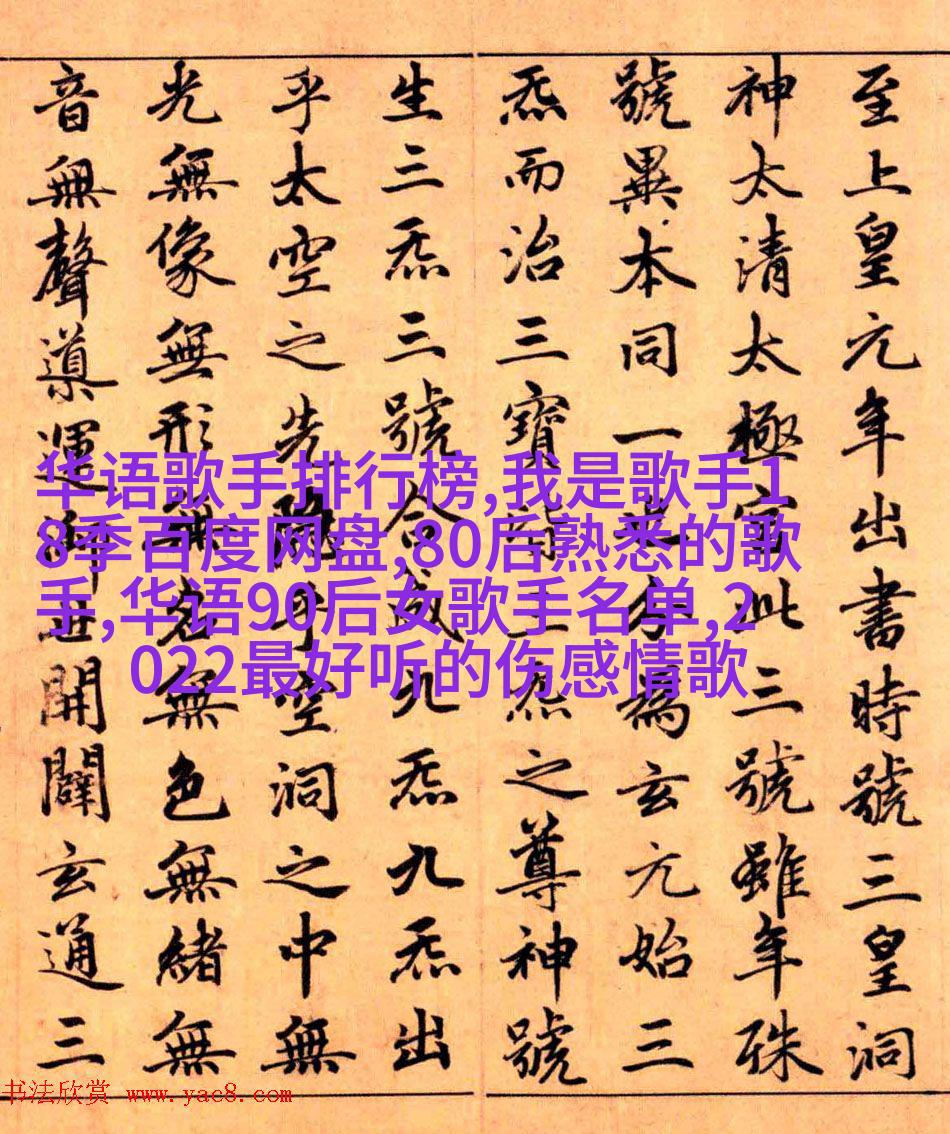 至上皇元年出書時號三皇洞
神太清太極宮此三號雖年殊
號異本同一分爲玄元始三
炁而治三寶皆三炁之尊神號
生三炁三號合成九炁九炁出
乎太空之先隱乎空洞之中無
光無像無形無名無色無緒無
音無聲導運御世開闢玄通三
华语歌手排行榜,我是歌手1
8季百度网盘,80后熟悉的歌
手,华语90后女歌手名单,2
022最好听的伤感情歌
书法欣赏 www.yac8.com